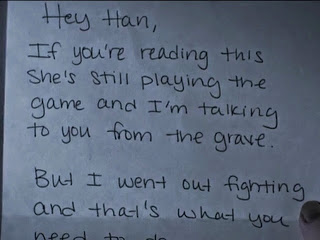 Hey Han,
If you're reading this
she's still playing the
game and I'm talking
to you from the grave.
But I went out fighting
and that's what you
need to do